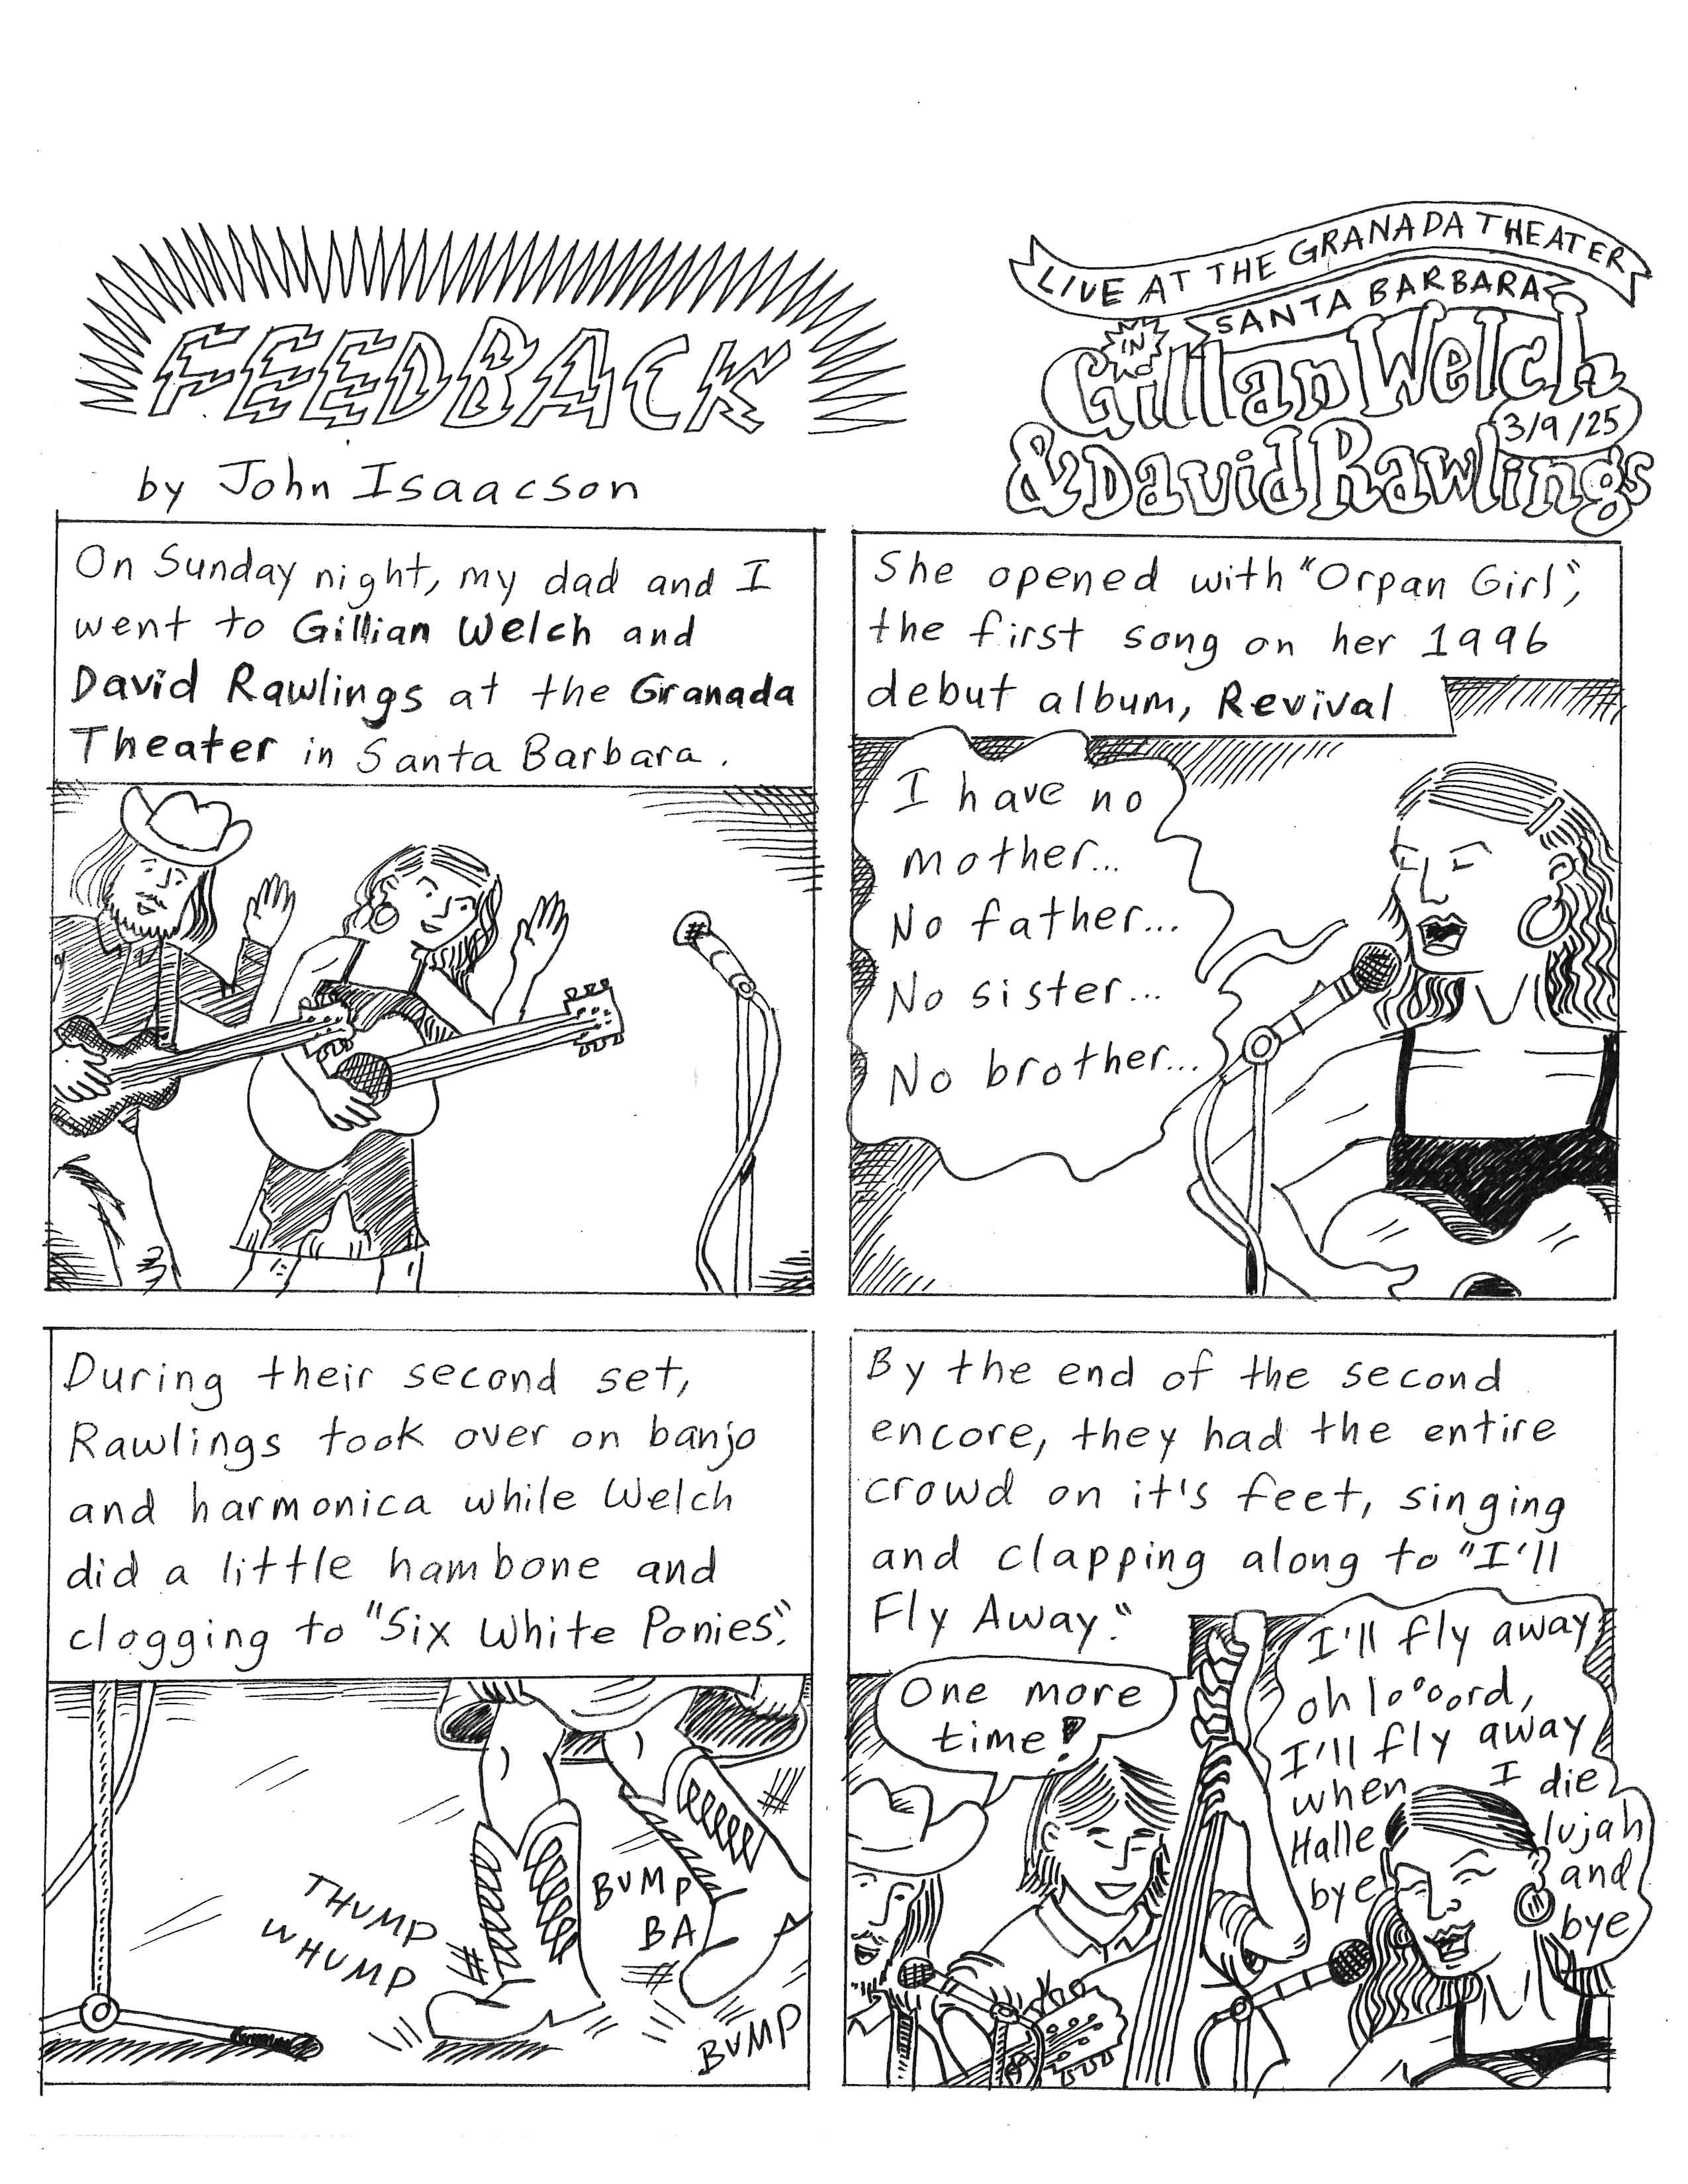 FEEDBACK
by John Isaacson
LIVE AT THE GRANADA THEATER
IN SANTA BARBARA
Gillian Welch
3/9/25
& David Rawlings
On Sunday night, my dad and I
went to Gillian Welch and
David Rawlings at the Granada
Theater in Santa Barbara.
She opened with "Orpan Girl",
the first song on her 1996
debut album, Revival
I have no
mother...
No father...
No sister...
No brother...
During their second set,
Rawlings took over on banjo
and harmonica while Welch
did a little hambone and
clogging to "Six White Ponies".
THUMP
WHUMP
BUMP
BA
BUMP
By the end of the second
encore, they had the entire
crowd on it's feet, singing
and clapping along to "I'll
Fly Away."
One more
time!
I'll fly away
oh looord,
I'll fly away
when I die
Halle lujah
bye and
bye